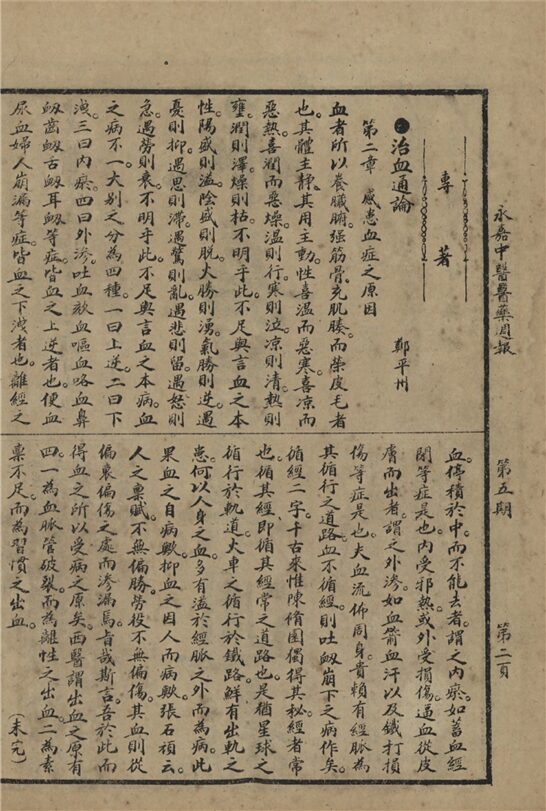 永嘉中醫醫藥週報
第五期
第二頁
專著
治血通論
鄭平州
第二章 感患血症之原因
血者所以養臟腑。强筋骨。充肌腠。而榮皮毛者
也。其體主靜。其用主動。性喜溫而惡寒。喜凉而
惡熱。喜潤而惡燥。溫則行。寒則泣。凉則清。熱則
壅。潤則澤。燥則枯。不明乎此。不足與言血之本
性。陽盛則溢。陰盛則脱。火勝則湧。氣勝則逆。遇
憂則抑。遇思則滯。遇驚則亂。遇悲則留。遇怒則
急。遇勞則衰。不明乎此。不足與言血之本病。血
之病不一。大别之分為四種。一曰上逆。二曰下
洩。三曰内瘀。四曰外滲。吐血欬血嘔血咯血鼻
衂齒衂舌衂耳衂等症。皆血之上逆者也。便血
尿血婦人崩漏等症。皆血之下洩者也。離經之
血。停積於中。而不能去者。謂之内瘀。如蓄血經
閉等症是也。内受邪熱。或外受損傷。逼血從皮
膚而出者。謂之外滲。如血箭血汗以及鐵打損
傷等症是也。夫血流佈周身。貴賴有經脈為
其循行之道路。血不循經。則吐衂崩下之病作矣。
循經二字。千古來惟陳脩園獨得其秘。經者常
也。循其經即循其經常之道路也。是猶星球之
循行於軌道。火車之循行於鐵路。鮮有出軌之
患。何以人身之血。多有溢於經脈之外而為病。此
果血之自病歟。抑血之因人而病歟。張石頑云。
人之稟賦。不無偏勝。勞役不無偏傷。其血則從
偏衰偏傷之處而滲漏焉。旨哉斯言。吾於此而
得血之所以受病之原矣。西醫謂出血之原有
四。一為血脈管破裂。而為離性之出血。二為素
稟不足。而為習慣之出血。
（未完）